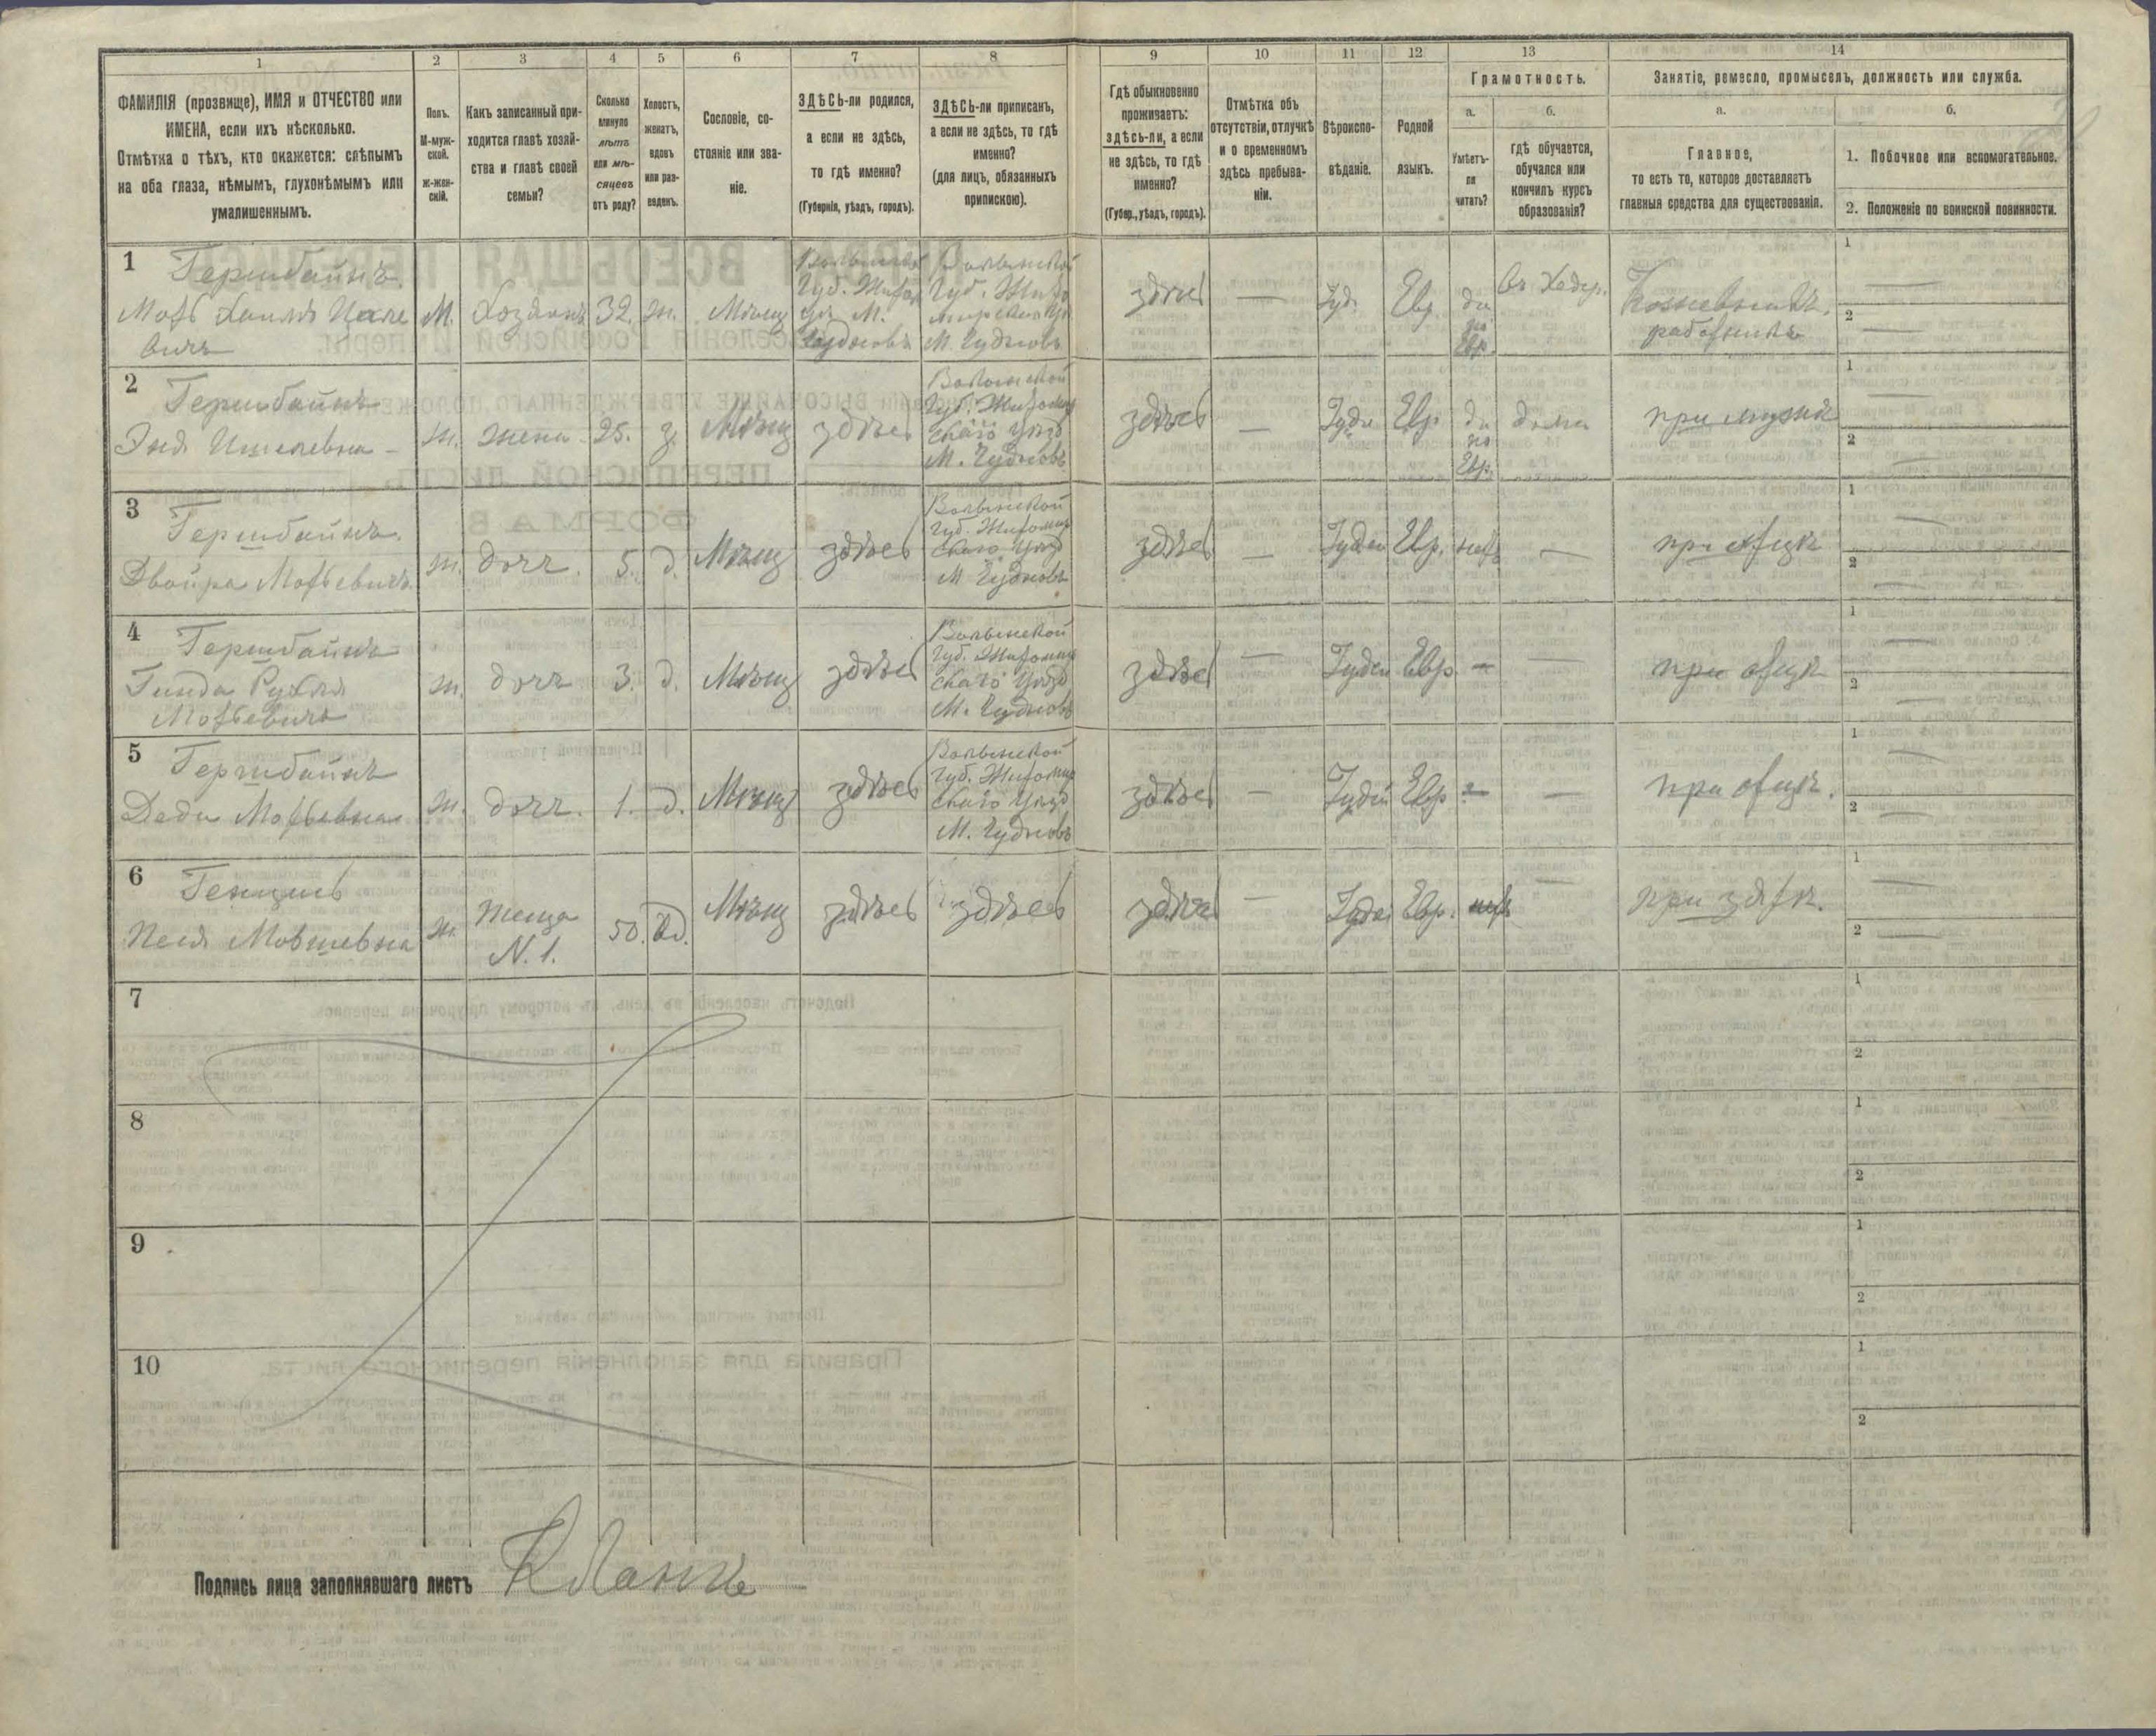 1
2
3
4
5
6
7
8
9
10
11
12
13
14
ФАМИЛІЯ (прозвище), ИМЯ и ОТЧЕСТВО или
ИМЕНА, если ихъ нѣсколько.
Отмѣтка о тѣхъ, кто окажется: слѣпымъ
на оба глаза, нѣмымъ, глухонѣмымъ или
умалишеннымъ.
Полъ.
М-муж-
ской.
Ж-жен-
скій.
Какъ записанный при-
ходится главѣ хозяй-
ства и главѣ своей
семьи?
Сколько
минуло
лѣтъ
или мѣ-
сяцевъ
отъ роду?
Холостъ,
женатъ,
вдовъ
или раз-
веденъ.
Сословіе, со-
стояніе или зва-
ніе.
ЗДѢСЬ-ли родился,
а если не здѣсь,
то гдѣ именно?
(Губернія, уѣздъ, городъ).
ЗДѢСЬ-ли приписанъ,
а если не здѣсь, то гдѣ
именно?
(для лицъ, обязанныхъ
припискою).
Гдѣ обыкновенно
проживаетъ:
здѣсь-ли, а если
не здѣсь, то гдѣ
именно?
(Губер., уѣздъ, городъ).
Отмѣтка объ
отсутствіи, отлучкѣ
и о временномъ
здѣсь пребыва-
ніи.
Вѣроиспо-
вѣданіе.
Родной
языкъ.
Грамотность.
а.
Умѣетъ-
ли
читать?
б.
гдѣ обучается,
обучался или
кончилъ курсъ
образованія?
Занятіе, ремесло, промыселъ, должность или служба.
а.
Главное,
то есть то, которое доставляетъ
главныя средства для существованія.
б.
1. Побочное или вспомогательное.
2. Положеніе по воинской повинности.
1 Гершбайнъ
М. Хозяинъ 32. ж. Мѣщ
М. Чудновъ
здѣсь — Іуд. Евр. да
по
Евр.
въ Хедер.
работникъ
1 —
2 —
2 Гершбайнъ
ж. жена 25. з. Мѣщ здѣсь
Волынской
Губ. Житомир
скаго Уѣзд
М. Чудновъ
здѣсь — Іуде Евр да
по
Евр.
дома при мужѣ
1
2
3 Гершбайнъ
Двойра
ж. доч. 5. д. Мѣщ здѣсь
Волынской
Губ. Житомир
скаго Уѣзд
М Чудновъ
здѣсь — Іудей Евр. нетъ — при отцѣ
1 —
2 —
4 Гершбайнъ
Рухля
ж. доч 3. д. Мѣщ здѣсь
Волынской
Губ. Житомир
скаго Уѣзд
М. Чудновъ
здѣсь — Іудей Евр — — при отцѣ
1 —
2 —
5 Гершбайнъ
ж. доч. 1. д. Мѣщ здѣсь
Волынской
Губ. Житомир
скаго Уѣзд
М. Чудновъ
здѣсь — Іудей Евр — — при отцѣ.
1 —
2 —
6
Мовшевна
ж теща
N. 1.
50. вд. Мѣщ здѣсь здѣсь
здѣсь — Іудей Евр. нетъ — при зятѣ.
1 —
2 —
7
1
2
8
1
2
9
1
2
10
1
2
Подпись лица заполнявшаго листъ